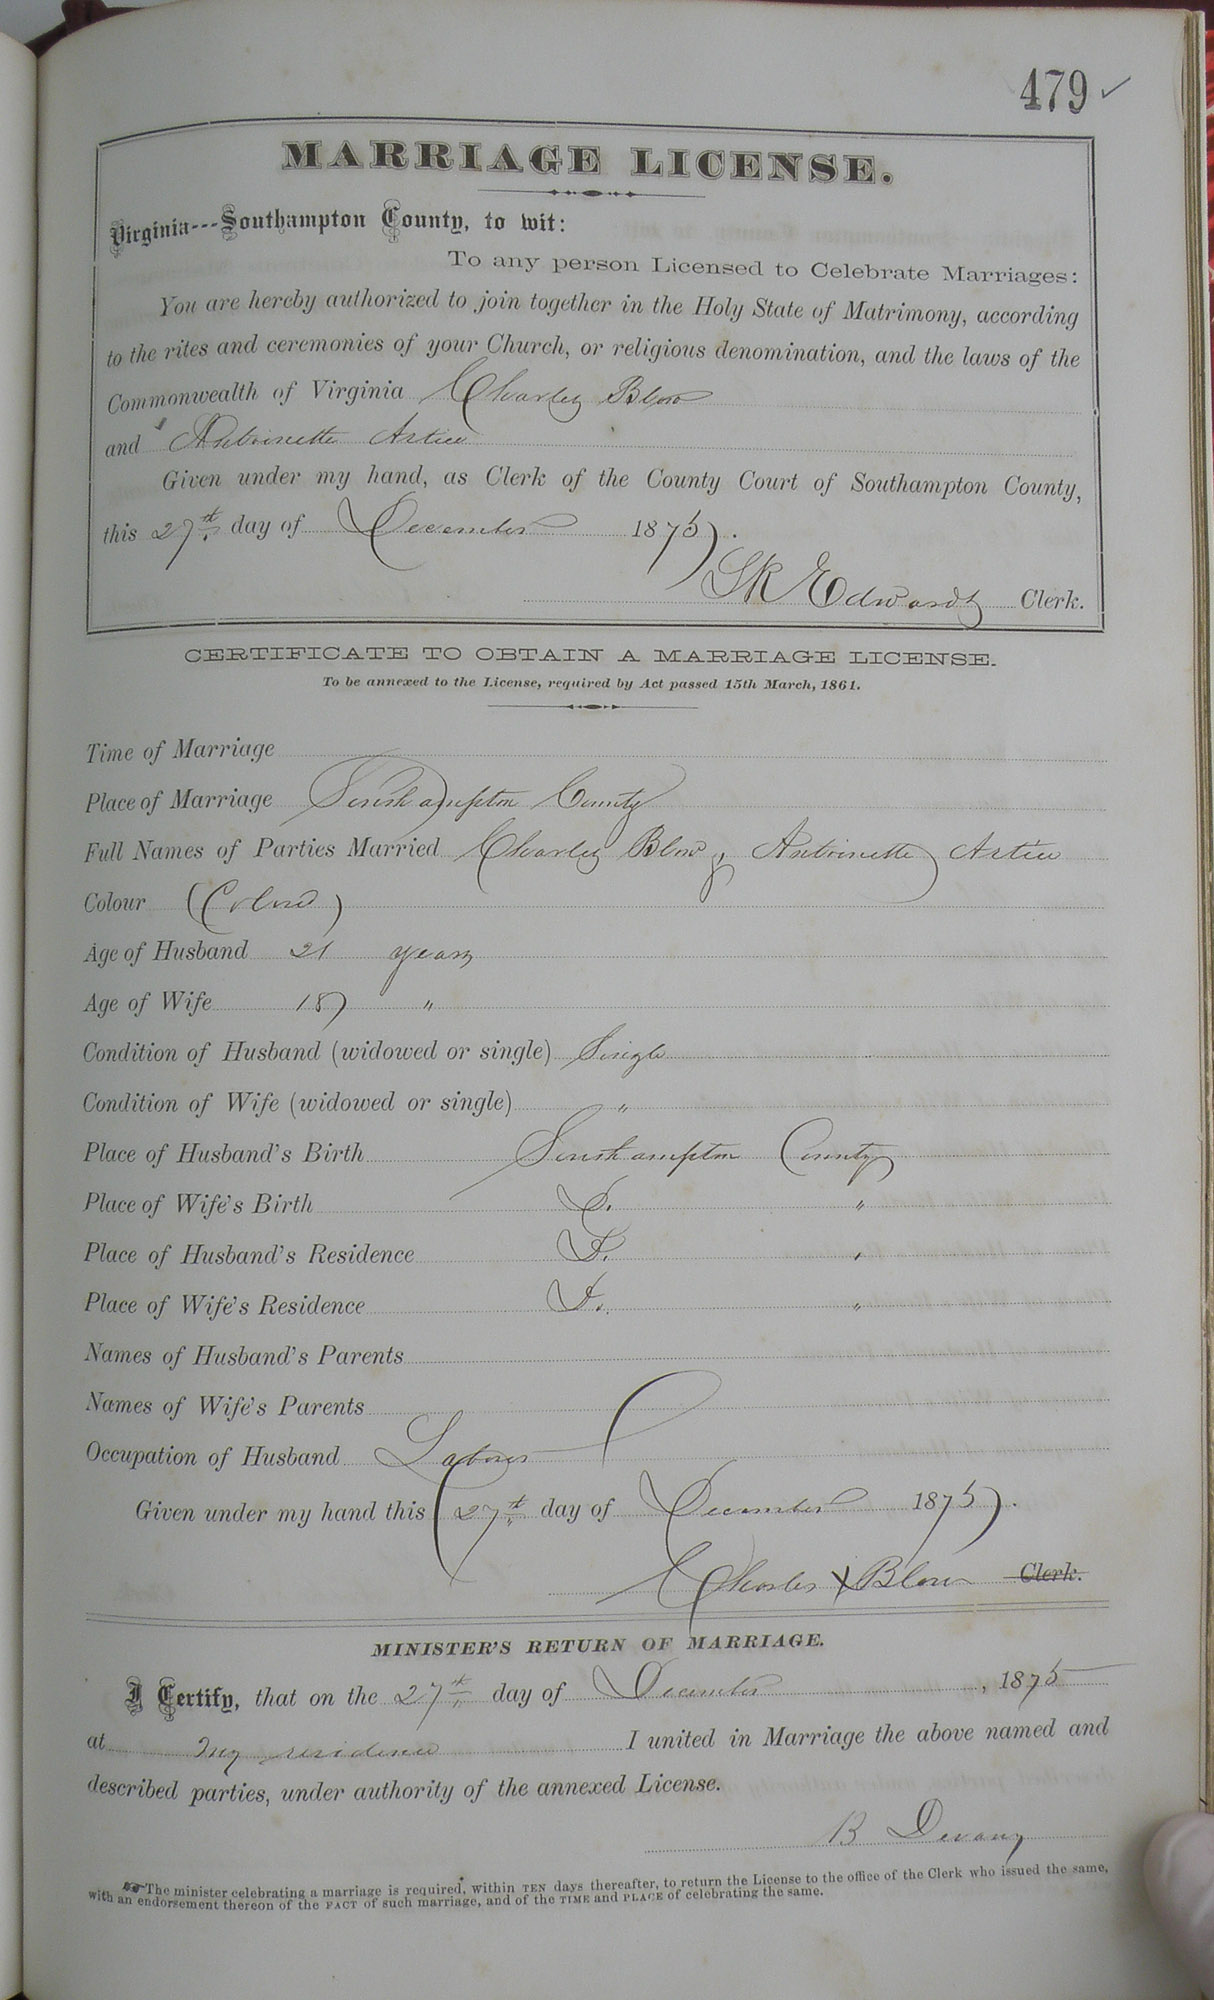 479 ✓
MARRIAGE LICENSE.
Virginia---Southampton County, to wit:
To any person Licensed to Celebrate Marriages:
You are hereby authorized to join together in the Holy State of Matrimony, according
to the rites and ceremonies of your Church, or religious denomination, and the laws of the
Commonwealth of Virginia Charley Blow
and Antoinette Artice
Given under my hand, as Clerk of the County Court of Southampton County,
this 27th day of December 1875.
Edwards Clerk.
CERTIFICATE TO OBTAIN A MARRIAGE LICENSE.
To be annexed to the License, required by Act passed 15th March, 1861.
Time of Marriage
Place of Marriage Southampton County
Full Names of Parties Married Charley Blow & Antoinette Artice
Colour (Colord)
Age of Husband 21 years
Age of Wife "
Condition of Husband (widowed or single) Single
Condition of Wife (widowed or single) "
Place of Husband's Birth Southampton County
Place of Wife's Birth D. "
Place of Husband's Residence D. "
Place of Wife's Residence D. "
Names of Husband's Parents
Names of Wife's Parents
Occupation of Husband Laborer
Given under my hand this 27th day of December 1875.
Charles X Blow Clerk.
MINISTER'S RETURN OF MARRIAGE.
I Certify, that on the 27th day of December, 1875
at my residence I united in Marriage the above named and
described parties, under authority of the annexed License.
B Devany
The minister celebrating a marriage is required, within TEN days thereafter, to return the License to the office of the Clerk who issued the same,
with an endorsement thereon of the FACT of such marriage, and of the TIME and PLACE of celebrating the same.